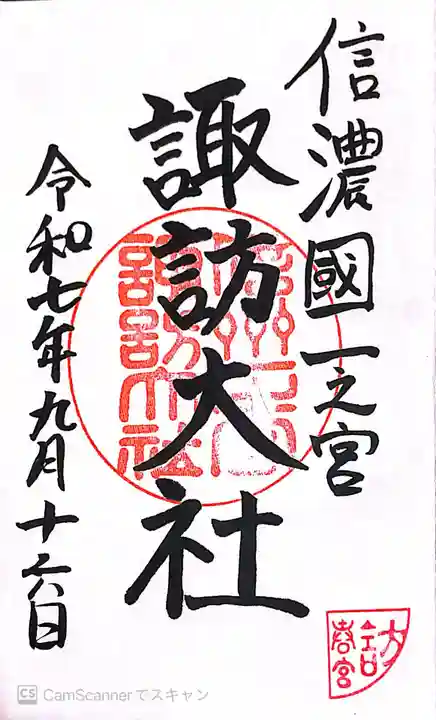 信濃國一之宮
諏訪大社
令和七年九月十六日
春宮
CS CamScannerでスキャン